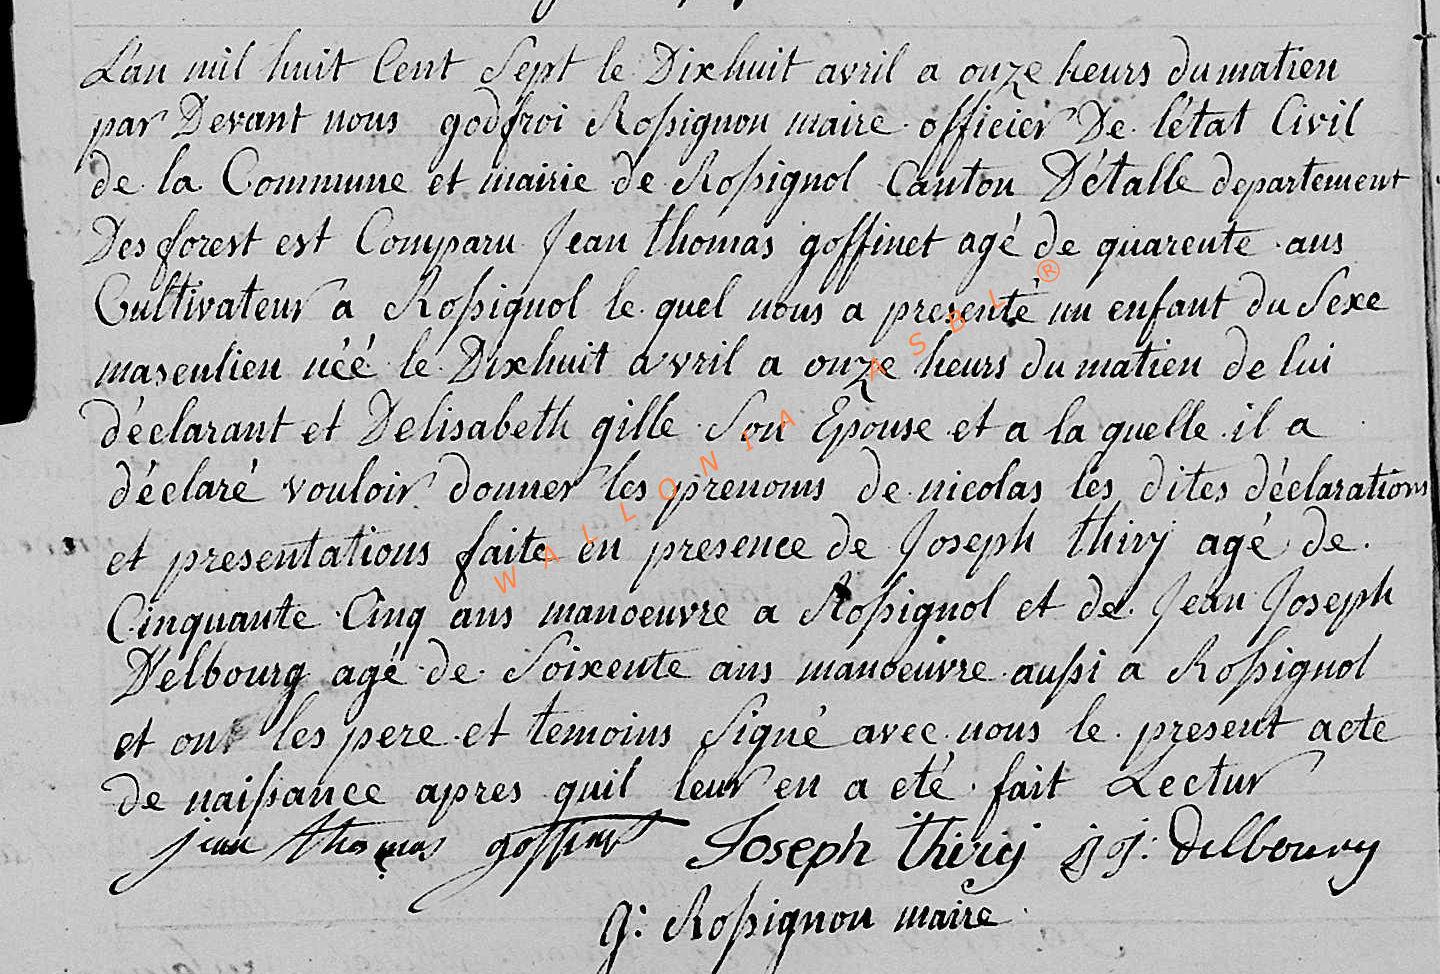 Lan mil huit Cent Sept le Dixhuit avril a onze heurs du matien
par Devant nous godfroi Roſsignon maire officier De létat Civil
de la Commune et mairie de Roſsignol Canton Détalle departement
Des forest est Comparu Jean thomas goffinet agé de quarente ans
Cultivateur a Roſsignol le quel nous a presenté un enfant du Sexe
masculien néé le Dixhuit avril a onze heurs du matien de lui
déclarant et Delisabeth gille Son Epouse et a la quelle il a
déclaré vouloir donner les prenoms de nicolas les dites déclarations
et presentations faite en presence de Joseph thiry agé de
Cinquante Cinq ans manoeuvre a Roſsignol et de Jean Joseph
Delbourg agé de Soixente ans manoeuvre auſsi a Roſsignol
et ont les pere et temoins Signé avec nous le present acte
de naiſsance apres quil leur en a eté fait Lectur
jean thomas goffinet Joseph thiry j j: delbourg
g: Roſsignon maire
WALLONIA ASBL ®